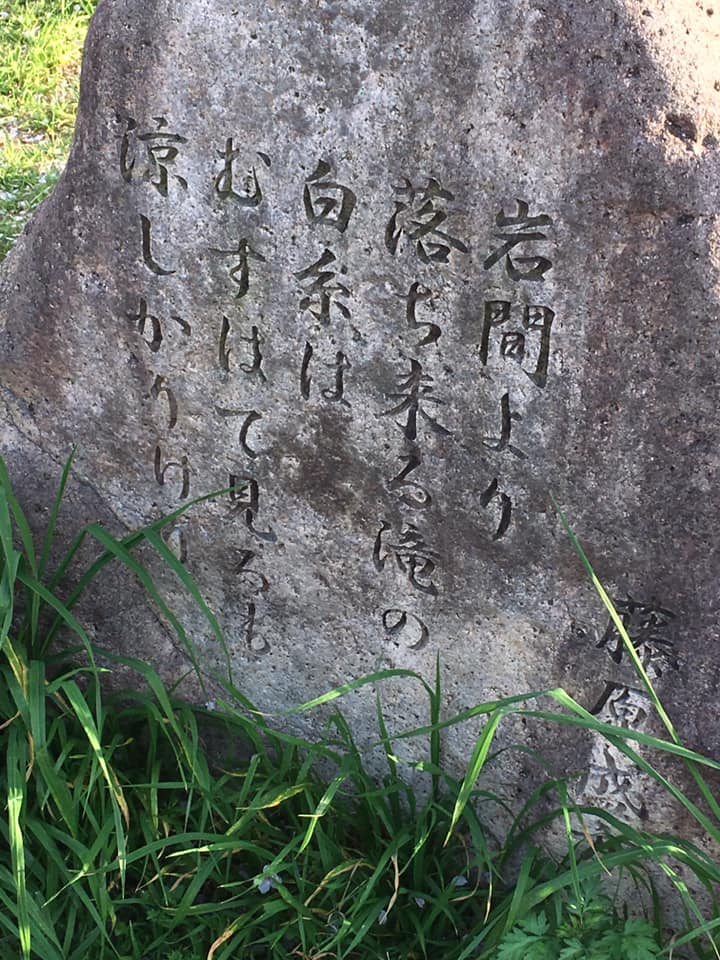 藤原盛
岩間より
落ち来る滝の
白糸は
むすはて見るも
涼しかりけり